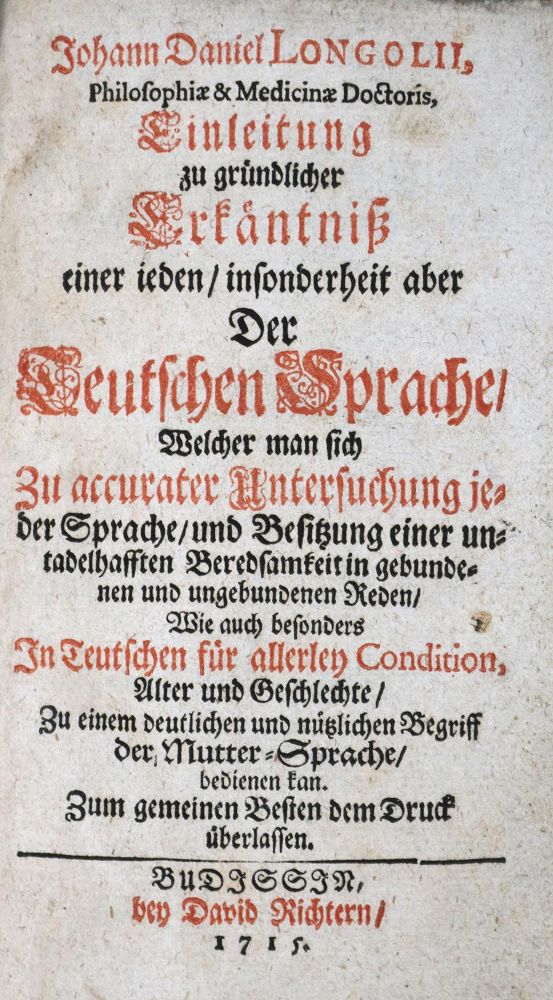 Johann Daniel LONGOLII,
Philosophiæ & Medicinæ Doctoris,
Einleitung
zu gründlicher
Erkäntniß
einer ieden/ insonderheit aber
Der
Teutschen Sprache/
Welcher man sich
Zu accurater Untersuchung je-
der Sprache/ und Besitzung einer un-
tadelhafften Beredsamkeit in gebunde-
nen und ungebundenen Reden/
Wie auch besonders
In Teutschen für allerley Condition,
Alter und Geschlechte/
Zu einem deutlichen und nützlichen Begriff
der Mutter-Sprache/
bedienen kan.
Zum gemeinen Besten dem Druck
überlassen.
BUDISSIN,
bey David Richtern/
1715.